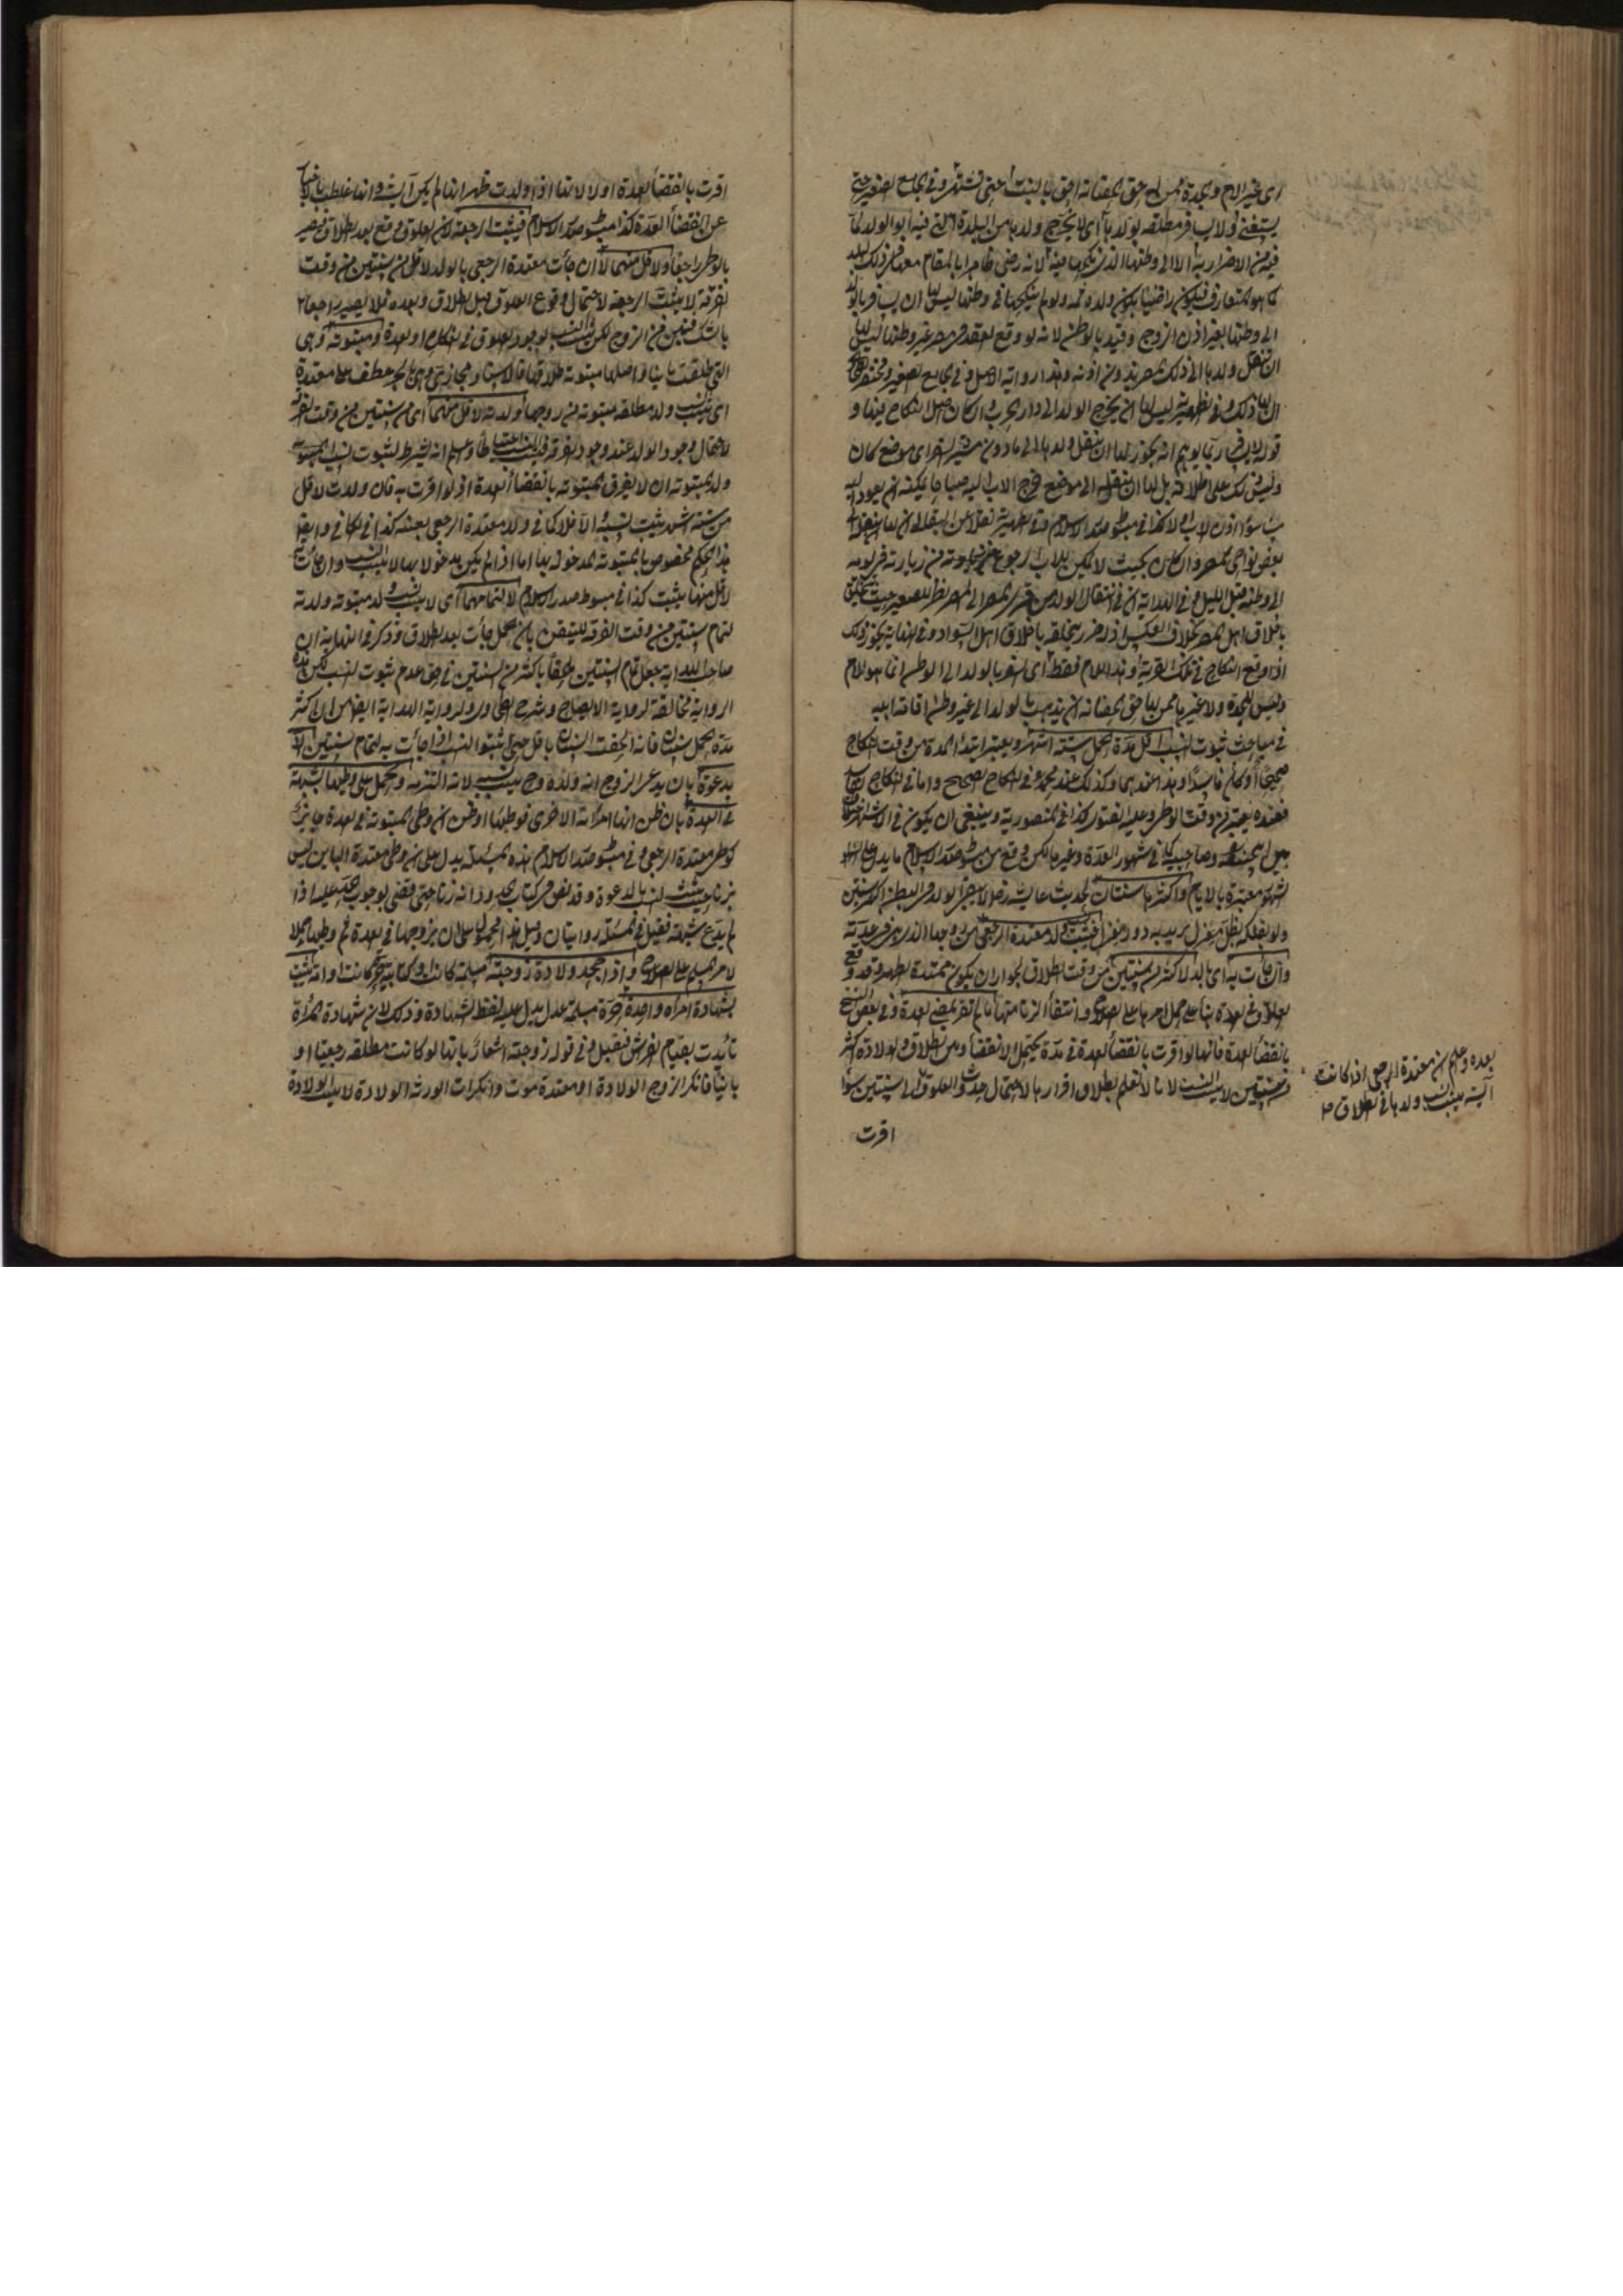 اى غير الام والجدة ممن له حق الحضانة احق بالبنت حتى تشتهى وفى الجامع الصغير حتى
يستغنى ولا يسافر مطلقة بولدها اى لا يخرج ولدها من البلدة التى فيه ابو الولد لما
فيه من الاضرار به الا الى وطنها الذى نكحها فيه لانه رضى ظاهرا بالمقام معها فى ذلك البلد
كما هو المتعارف فيكون راضيا بكون ولده ثمه ولو لم ينكحها فى وطنها ليس لها ان يسافر بالولد
الى وطنها بغير اذن الزوج وقيد بالوطن لانه لو وقع العقد فى مصر غير وطنها ليس لها
ان تنقل ولدها الى ذلك المصر بدون اذنه وهذا رواية الاصل وفى الجامع الصغير
ان لها ذلك وفى الظهيرية ليس لها ان يخرج الولد الى دار الحرب وان كان اصل النكاح فيها و
قوله لا يسافر ربما يوهم انه يجوز لها ان ينقل ولدها الى ما دون مسيرة السفر اى موضع كان
وليس ذلك على اطلاقه بل لها ان ينقله الى موضع يخرج الاب اليه صباحا يمكنه ان يعود اليه
مساء اذن الاب او لا كذا فى مبسوط صدر الاسلام وفى الظهيرية نقلا عن البقالى ان لها
بعض نواحى المصر وان كان بحيث لا يمكن للاب الرجوع من زيارته فى يومه
الى وطنه قبل الليل وفى الهداية ان فى انتقال الولد من قرية المصر الى المصر نظر للصغير حيث يتخلق
باخلاق اهل المصر بخلاف العكس اذ فيه ضرر لتخلقه باخلاق اهل السواد وفى النهاية يجوز ذلك
اذا وقع النكاح فى تلك القرية وهذا للام فقط اى السفر بالولد الى الوطن انما هو للام
وليس للجدة ولا غيرها ممن لها حق الحضانة ان يذهب بالولد الى غير وطن اقامة ابيه
فى مباحث ثبوت النسب اقل مدة الحمل ستة اشهر ويعتبر ابتداء المدة من وقت النكاح
صحيحا او كان فاسدا وهذا عندهما وكذلك عند محمد فى النكاح الصحيح واما فى النكاح الفاسد
فعنده يعتبر من وقت الوطى وعليه الفتوى كذا فى المنصورية وينبغى ان يكون فى الاشهر اختلاف
بين ابى حنيفة وصاحبيه كما فى شهور العدة وغيرها لكن وقع من مبسوط صدر الاسلام ما يدل على ان
الشهور معتبرة بالايام واكثرها سنتان لحديث عايشة رض لا يبقى الولد فى البطن اكثر من سنتين
ولو بفلكة بظل مغزل يريد به دور مغزل فيثبت ولد معتدة الرجعى من زوجها الذى هى فى عدته
وان جاءت به اى بالولد لاكثر من سنتين من وقت الطلاق لجواز ان يكون ممتدة الطهر وقد وقع
العلوق فى العدة بناء على حمل امرها على الصلاح وانتفاء الزنا منها ما لم تقر بمضى العدة وفى بعض النسخ
بانقضاء العدة فانها لو اقرت بانقضاء العدة فى مدة يحتمل الانقضاء وبين الطلاق والولادة اكثر
من سنتين لا يثبت النسب لانا لا نعلم بطلان اقرارها لاحتمال حدوث العلوق اى سنتين سواء
اقرت
بعده وعلم ان معتدة الرجعى اذا كانت
آيسة يثبت نسب ولدها فى الطلاق
اقرت بانقضاء العدة او لا لانها اذا ولدت ظهر انها لم يكن آيسة وانها غلطت بالاخبار
عن انقضاء العدة كذا فى مبسوط صدر الاسلام فيثبت الرجعة لان العلوق وقع بعد الطلاق فيصير
بالوطى راجعا ولا قل منهما لا اى ان جاءت معتدة الرجعى بالولد لاقل من سنتين من وقت
الفرقة لا يثبت الرجعة لاحتمال وقوع العلوق قبل الطلاق وبعده فلا يصير راجعا
بالشك فتبين من الزوج لكن يثبت النسب لوجود العلوق فى النكاح او العدة ومبتوتة وهى
التى طلقت باينا واصلها مبتوتة طلاقها فالاسناد مجازى وهى بالجر عطف على معتدة
اى يثبت نسب ولد مطلقة مبتوتة من زوجها ولدته لاقل منهما اى من سنتين من وقت الفرقة
لاحتمال وجود الولد عند وجود الفرقة فيثبت النسب احتياطا وعلم انه يشترط لثبوت نسب المبتوتة
ولد المبتوتة ان لا يقر المبتوتة بانقضاء العدة اذ لو اقرت به فان ولدت لاقل
من ستة اشهر يثبت نسبه والا فلا كما فى ولد معتدة الرجعى بعينه كذا فى الكافى وايضا
هذا الحكم مخصوص بالمبتوتة المدخول بها اما اذا لم يكن مدخولا بها لا يثبت النسب وان جاءت
لاقل منهما يثبت كذا فى مبسوط صدر الاسلام لا لتمامهما اى لا يثبت نسب ولد مبتوتة ولدته
لتمام سنتين من وقت الفرقة للتيقن بان الحمل جاءت بعد الطلاق وذكر فى النهاية ان
صاحب الهداية جعل تمام السنتين ملحقا باكثر من السنتين فى حق عدم ثبوت النسب لكن هذه
الرواية مخالفة لرواية الايضاح وشرح الطحاوى ولرواية الهداية ايضا من ان اكثر
مدة الحمل سنتان فانه الحقت السنتان باقل حتى اثبتوا النسب اذا جاءت به لتمام سنتين الا
بدعوة بان يدعى الزوج انه ولده وح يثبت نسبه لانه التزمه ويحمل على وطيها بشبهة
فى العدة بان ظن انها امرأته الاخرى فوطئها او ظن ان وطى المبتوتة فى العدة جايز
كوطى معتدة الرجعى وفى مبسوط صدر الاسلام هذه المسئلة يدل على ان وطى معتدة الباين ليس
بزنا حيث يثبت النسب بالدعوة وقد نص فى كتاب الحدود انه زنا حتى قضى بوجوب الحد عليه اذا
لم يدع شبهة فقيل فى المسئلة روايتان وقيل هذا محمول على ان يزوجها فى العدة ثم وطيها حملا
لامر المسلم على الصلاح واذا جحد ولادة زوجته مسلمة كانت او كتابية حرة كانت او امة يثبت
بشهادة امرأة واحدة حرة مسلمة عدل بدليل عليه لفظ الشهادة وذلك لان شهادة المرأة
تأيدت بقيام الفراش فيقبل وفى قوله زوجته اشعار بانها لو كانت مطلقة رجعيا او
باينا فانكر الزوج الولادة او معتدة موت وانكرت الورثة الولادة لا يثبت الولادة